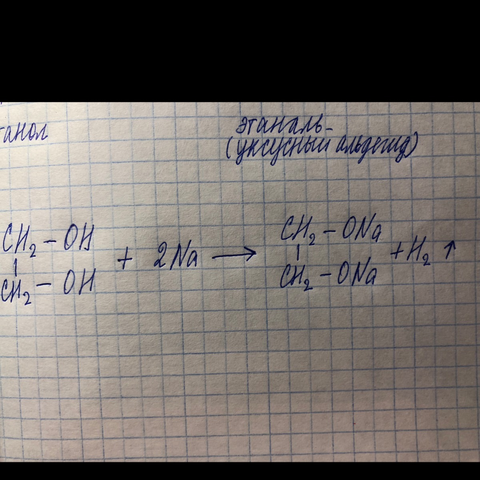 танол этаналь-
(уксусный альдегид)
CH₂ – OH CH₂ – ONa
| + 2Na ⟶ | + H₂ ↑
CH₂ – OH CH₂ – ONa